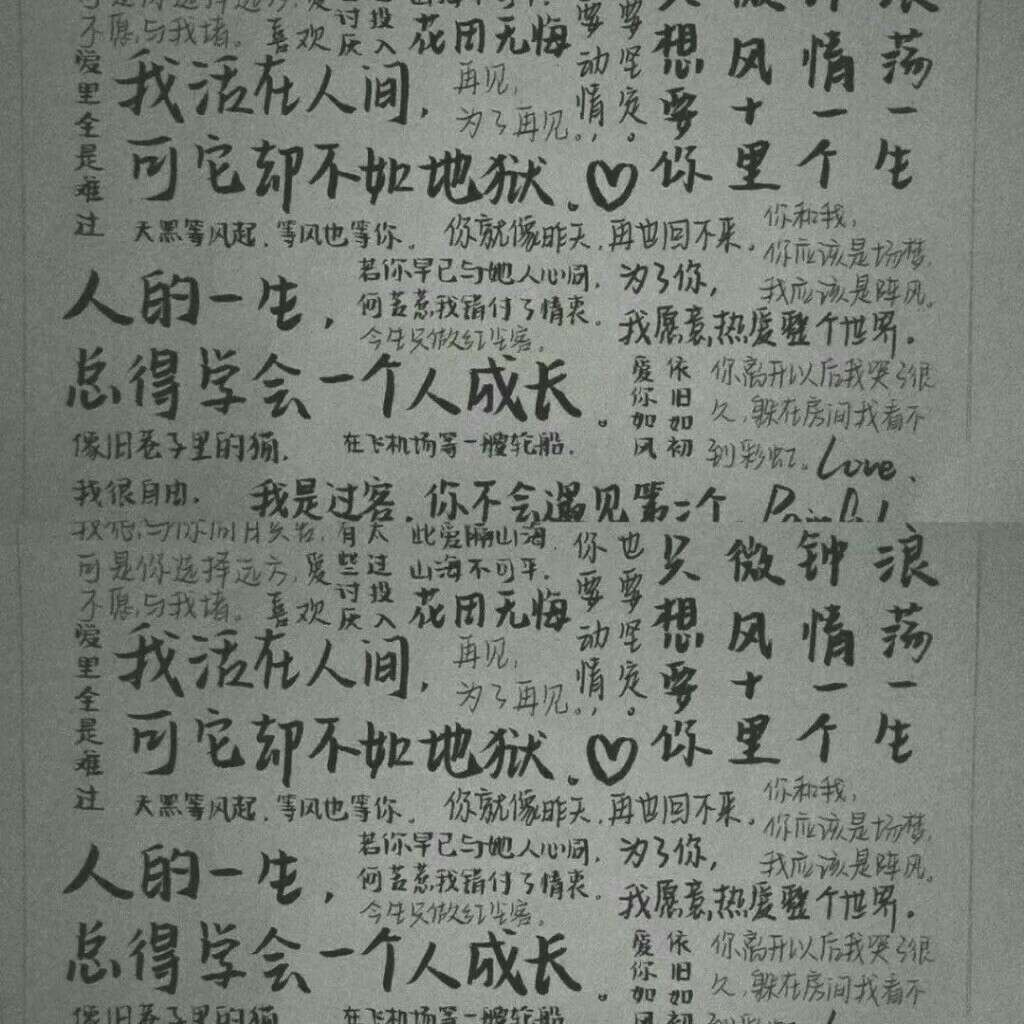 可是你选择远方,
不愿与我堵。
爱
喜欢
讨厌
投入
山海不可平.
花团无悔
要动情,
要坚定。
只想要你
微风十里
钟情一个
浪荡一生
爱里全是难过
我活在人间,
可它却不如地狱.♡
再见,
为了再见。
天黑等风起.等风也等你.
你就像昨天.再也回不来.
你和我,
你应该是场梦,
我应该是阵风。
人的一生,
总得学会一个人成长。
若你早已与她人心同.
何苦惹我错付了情衷.
今生只做红尘客.
为了你,
我愿意热爱整个世界.
爱你如风
依旧如初
你离开以后我哭了很
久,躲在房间我看不
到彩虹.
Love.
像旧巷子里的猫.
我很自由.
在飞机场等一艘轮船.
我是过客.你不会遇见第二个
有些讨厌
太过投入
此爱隔山海,
山海不可平.
可是你选择远方,
不愿与我堵。
爱
喜欢
花团无悔
你要动情,
也要坚定。
只想要你
微风十里
钟情一个
浪荡一生
爱里全是难过
我活在人间,
可它却不如地狱.♡
再见,
为了再见。
天黑等风起.等风也等你.
你就像昨天.再也回不来.
你和我,
你应该是场梦,
我应该是阵风。
人的一生,
总得学会一个人成长。
若你早已与她人心同.
何苦惹我错付了情衷.
今生只做红尘客.
为了你,
我愿意热爱整个世界.
爱你如风
依旧如初
你离开以后我哭了很
久,躲在房间我看不
像旧巷子里的猫
在飞机场等一艘轮船